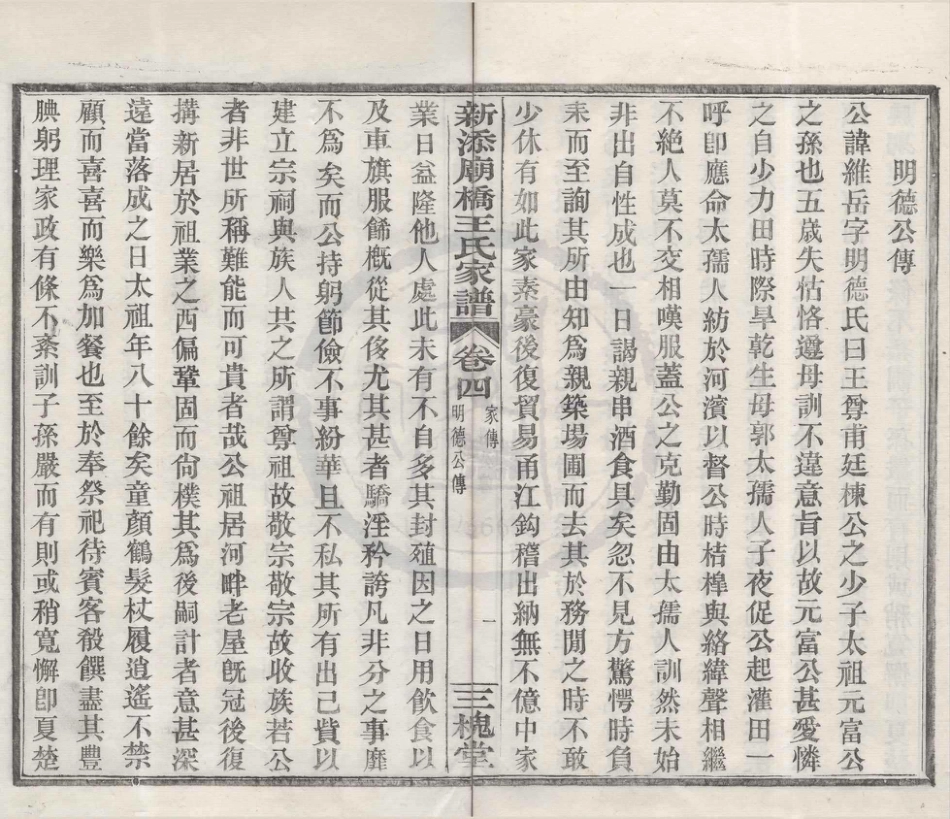 明德公傳
公諱維岳字明德氏曰王尊甫廷棟公之少子太祖元富公
之孫也五歲失怙恪遵母訓不違意旨以故元富公甚愛憐
之自少力田時際旱乾生母郭太孺人子夜促公起灌田一
呼卽應命太孺人紡於河濱以督公時桔槹與絡緯聲相繼
不絕人莫不交相嘆服蓋公之克勤固由太孺人訓然未始
非出自性成也一日謁親串酒食具矣忽不見方驚愕時負
耒而至詢其所由知爲親築場圃而去其於務閒之時不敢
少休有如此家素豪後復貿易甬江鈎稽出納無不億中家
新添廟橋王氏家譜 卷四 家傳 明德公傳 一 三槐堂
業日益隆他人處此未有不自多其封殖因之日用飲食以
及車旗服飾槪從其侈尤其甚者驕淫矜誇凡非分之事靡
不爲矣而公持躬節儉不事紛華且不私其所有出己貲以
建立宗祠與族人共之所謂尊祖故敬宗敬宗故收族若公
者非世所稱難能而可貴者哉公祖居河畔老屋旣冠後復
搆新居於祖業之西偏鞏固而尙樸其爲後嗣計者意甚深
遠當落成之日太祖年八十餘矣童顏鶴髮杖履逍遙不禁
顧而喜喜而樂爲加餐也至於奉祭祀待賓客殽饌盡其豐
腆躬理家政有條不紊訓子孫嚴而有則或稍寬懈卽夏楚